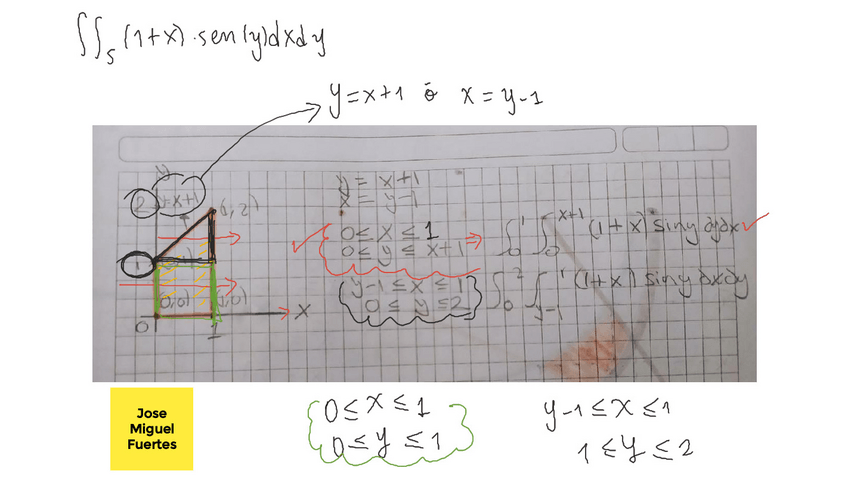 ∫∫_S (1+x)·sen(y)dxdy
y=x+1 ó x=y-1
y
2
y=x+1
(1,2)
1
(0,0)
(1,0)
0
1
x
y = x+1
x = y-1
0≤x≤1
0≤y≤x+1
∫_0^1 ∫_0^{x+1} (1+x) siny dydx
y-1≤x≤1
0≤y≤2
∫_0^2 ∫_{y-1}^1 (1+x) siny dxdy
Jose
Miguel
Fuertes
0≤x≤1
0≤y≤1
y-1≤x≤1
1≤y≤2